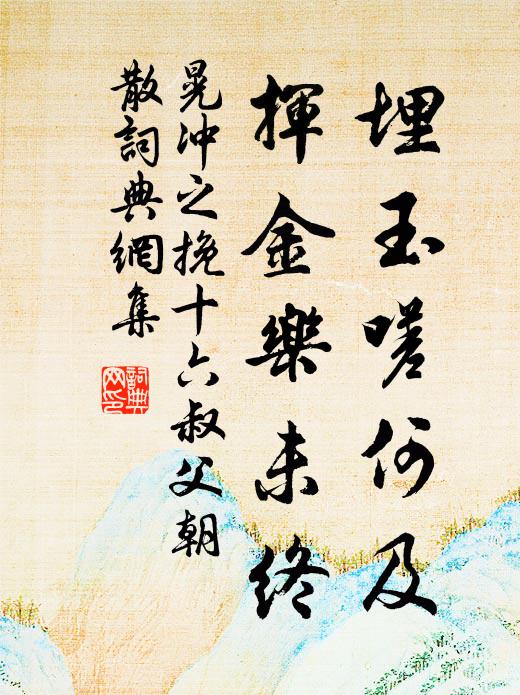 埋玉嗟何及
揮金樂未終
晃沖之挽十六叔父朝
散詞典網集
詞典網印